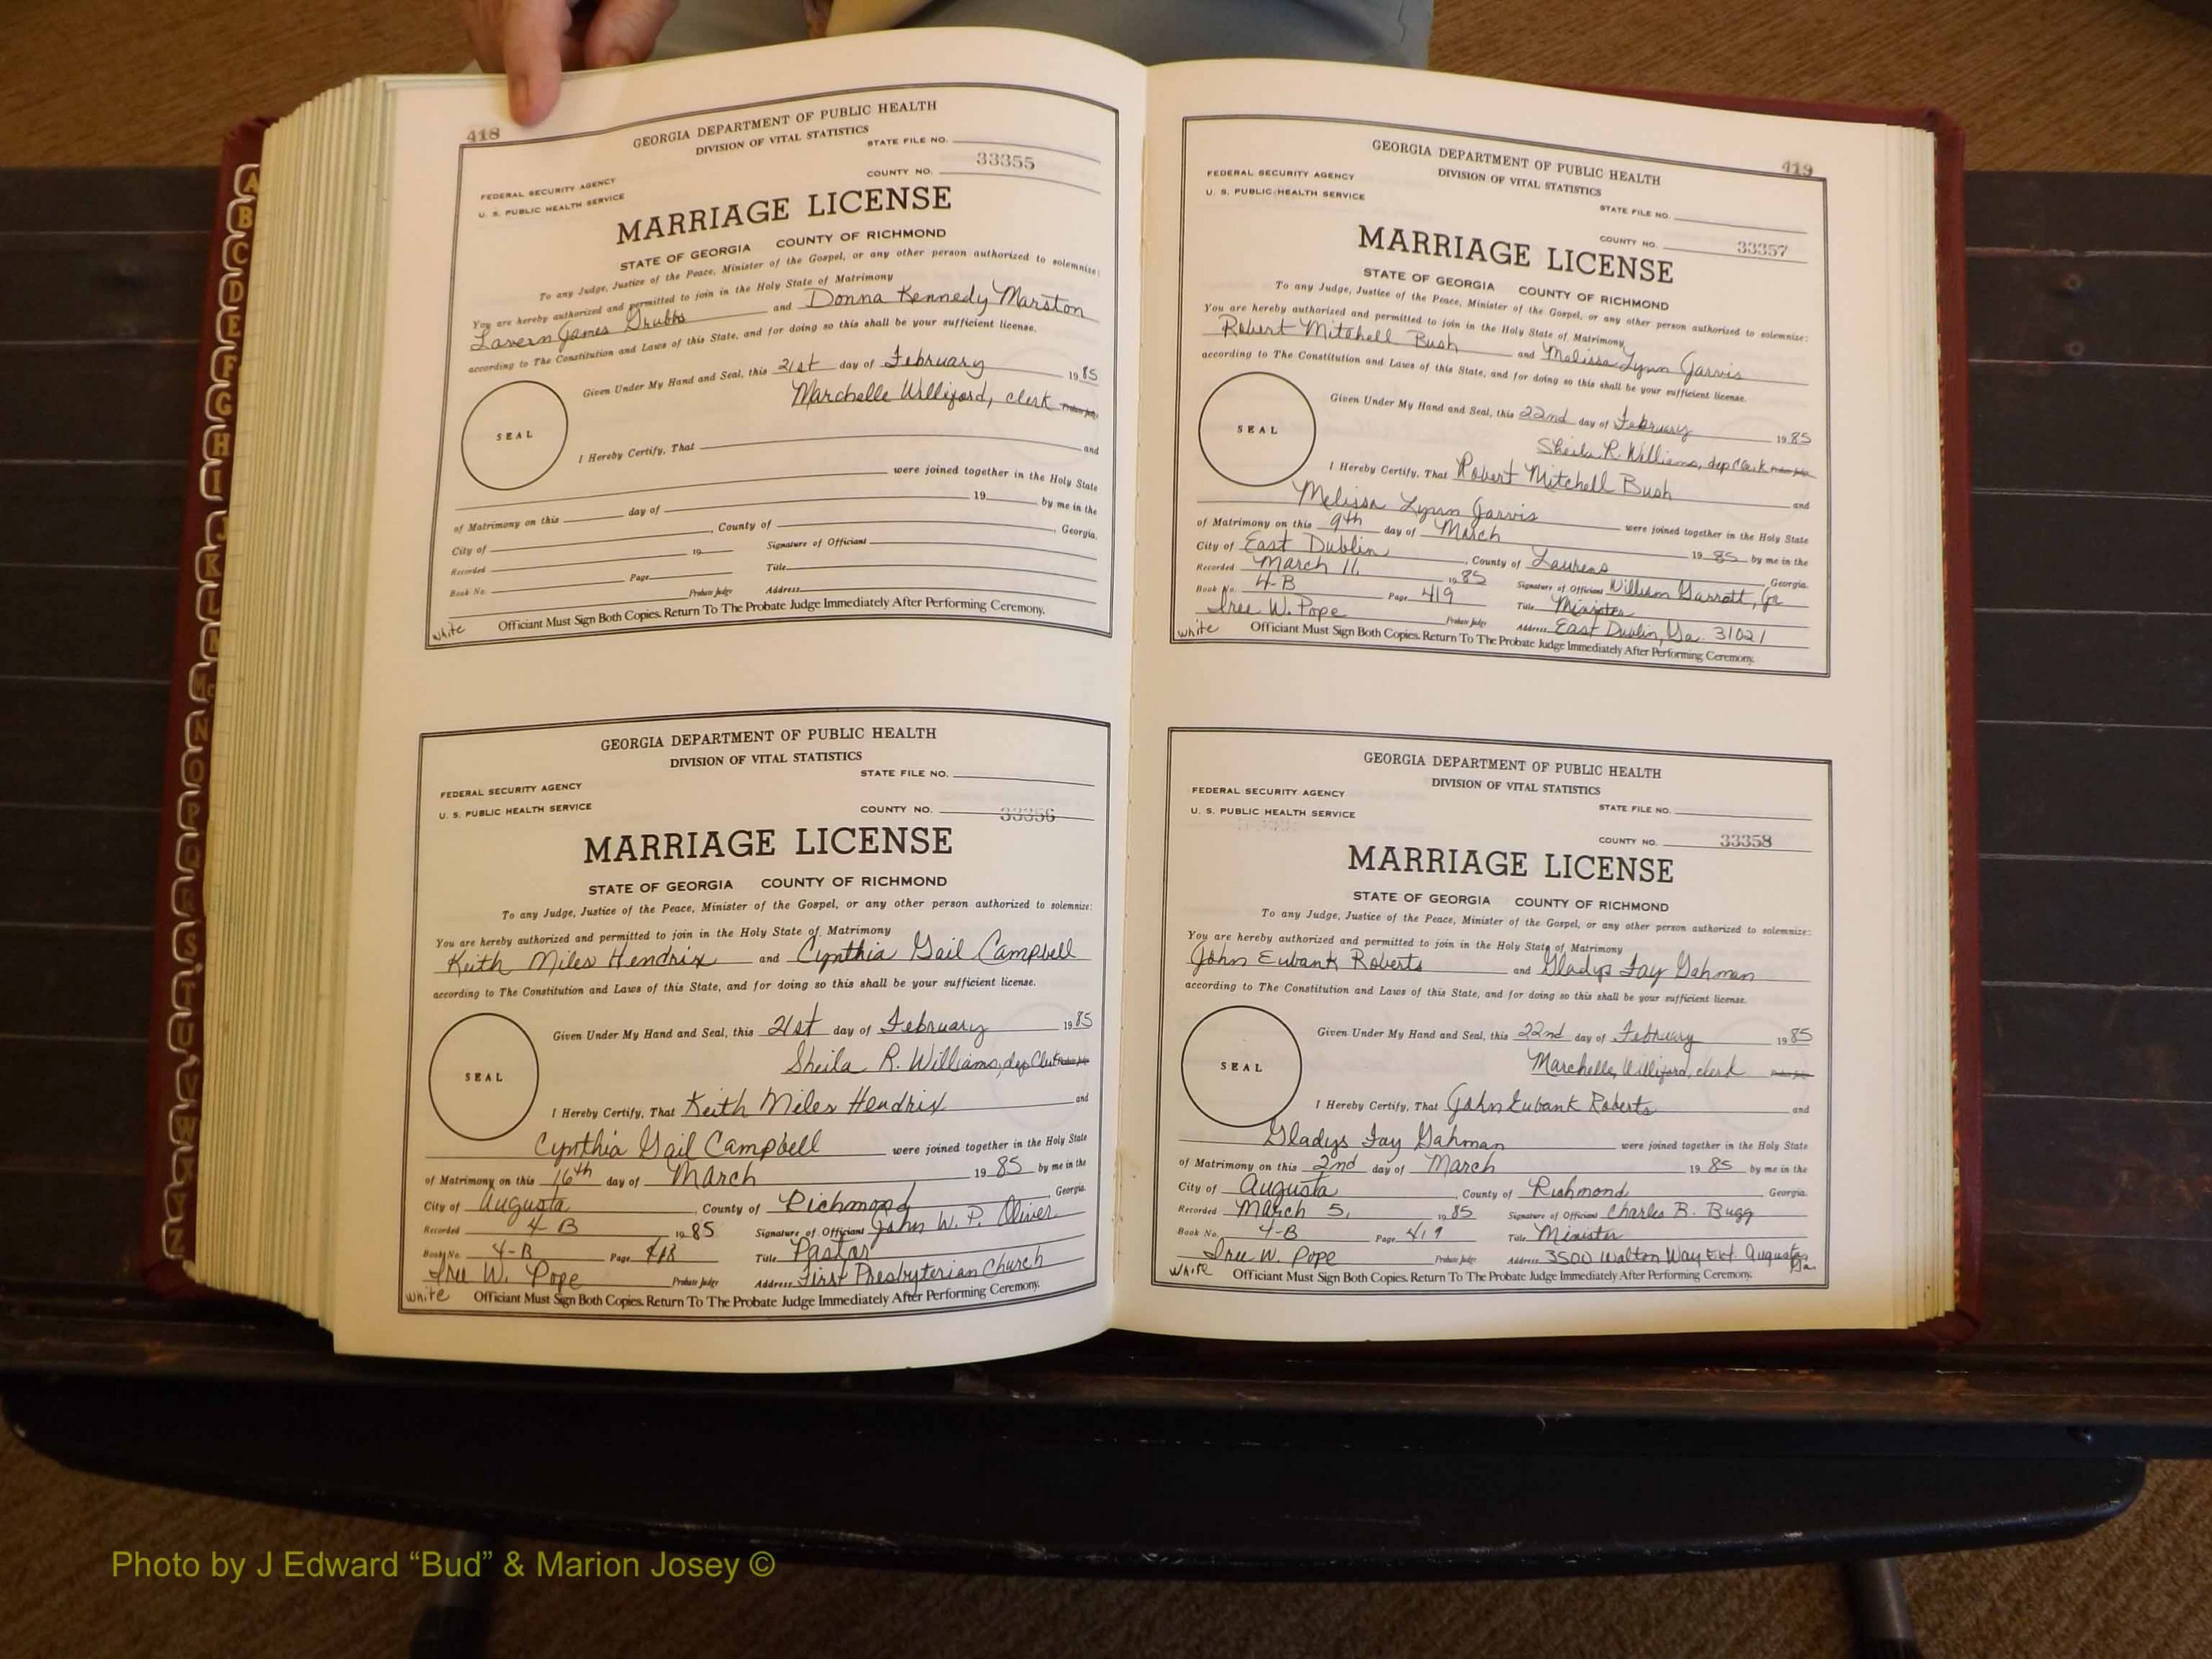 418
GEORGIA DEPARTMENT OF PUBLIC HEALTH
DIVISION OF VITAL STATISTICS
STATE FILE NO.
FEDERAL SECURITY AGENCY
U. S. PUBLIC HEALTH SERVICE
COUNTY NO. 33355
MARRIAGE LICENSE
STATE OF GEORGIA COUNTY OF RICHMOND
To any Judge, Justice of the Peace, Minister of the Gospel, or any other person authorized to solemnize:
You are hereby authorized and permitted to join in the Holy State of Matrimony
Lavern James Grubbs and Donna Kennedy Marston
according to The Constitution and Laws of this State, and for doing so this shall be your sufficient license.
Given Under My Hand and Seal, this 21st day of February 1985
Marchelle Williford, clerk Probate Judge
SEAL
I Hereby Certify, That and
were joined together in the Holy State
of Matrimony on this day of 19 by me in the
City of , County of , Georgia.
Recorded 19 Signature of Officiant
Book No. Page Title
Probate Judge Address
white Officiant Must Sign Both Copies. Return To The Probate Judge Immediately After Performing Ceremony.
GEORGIA DEPARTMENT OF PUBLIC HEALTH
DIVISION OF VITAL STATISTICS
STATE FILE NO.
FEDERAL SECURITY AGENCY
U. S. PUBLIC HEALTH SERVICE
COUNTY NO. 33356
MARRIAGE LICENSE
STATE OF GEORGIA COUNTY OF RICHMOND
To any Judge, Justice of the Peace, Minister of the Gospel, or any other person authorized to solemnize:
You are hereby authorized and permitted to join in the Holy State of Matrimony
Keith Miles Hendrix and Cynthia Gail Campbell
according to The Constitution and Laws of this State, and for doing so this shall be your sufficient license.
Given Under My Hand and Seal, this 21st day of February 1985
Sheila R. Williams, dep Clerk Probate Judge
SEAL
I Hereby Certify, That Keith Miles Hendrix and
Cynthia Gail Campbell were joined together in the Holy State
of Matrimony on this 16th day of March 1985 by me in the
City of Augusta , County of Richmond , Georgia.
Recorded 4-B 1985 Signature of Officiant John W. P. Oliver
Book No. 4-B Page 418 Title Pastor
Iree W. Pope Probate Judge Address First Presbyterian Church
white Officiant Must Sign Both Copies. Return To The Probate Judge Immediately After Performing Ceremony.
419
GEORGIA DEPARTMENT OF PUBLIC HEALTH
DIVISION OF VITAL STATISTICS
FEDERAL SECURITY AGENCY
U. S. PUBLIC HEALTH SERVICE
STATE FILE NO.
COUNTY NO. 33357
MARRIAGE LICENSE
STATE OF GEORGIA COUNTY OF RICHMOND
To any Judge, Justice of the Peace, Minister of the Gospel, or any other person authorized to solemnize:
You are hereby authorized and permitted to join in the Holy State of Matrimony
Robert Mitchell Bush and Melissa Lynn Jarvis
according to The Constitution and Laws of this State, and for doing so this shall be your sufficient license.
Given Under My Hand and Seal, this 22nd day of February 1985
Sheila R. Williams, dep Clerk Probate Judge
SEAL
I Hereby Certify, That Robert Mitchell Bush and
Melissa Lynn Jarvis were joined together in the Holy State
of Matrimony on this 9th day of March 1985 by me in the
City of East Dublin , County of Laurens , Georgia.
Recorded March 11 1985 Signature of Officiant William Garrott, Jr
Book No. 4-B Page 419 Title Minister
Iree W. Pope Probate Judge Address East Dublin, Ga. 31021
white Officiant Must Sign Both Copies. Return To The Probate Judge Immediately After Performing Ceremony.
GEORGIA DEPARTMENT OF PUBLIC HEALTH
DIVISION OF VITAL STATISTICS
FEDERAL SECURITY AGENCY
U. S. PUBLIC HEALTH SERVICE
STATE FILE NO.
COUNTY NO. 33358
MARRIAGE LICENSE
STATE OF GEORGIA COUNTY OF RICHMOND
To any Judge, Justice of the Peace, Minister of the Gospel, or any other person authorized to solemnize:
You are hereby authorized and permitted to join in the Holy State of Matrimony
John Eubank Roberts and Gladys Fay Gahman
according to The Constitution and Laws of this State, and for doing so this shall be your sufficient license.
Given Under My Hand and Seal, this 22nd day of February 1985
Marchelle Williford, clerk Probate Judge
SEAL
I Hereby Certify, That John Eubank Roberts and
Gladys Fay Gahman were joined together in the Holy State
of Matrimony on this 2nd day of March 1985 by me in the
City of Augusta , County of Richmond Georgia.
Recorded March 5, 1985 Signature of Officiant Charles B. Bugg
Book No. 4-B Page 419 Title Minister
Iree W. Pope Probate Judge Address 3500 Walton Way Ext. Augusta, Ga.
White Officiant Must Sign Both Copies. Return To The Probate Judge Immediately After Performing Ceremony.
A
B
C
D
E
F
G
H
I
J
K
L
M
Mc
N
O
P
Q
R
S
T
U
V
W
X
Y
Z
Photo by J Edward “Bud” & Marion Josey ©